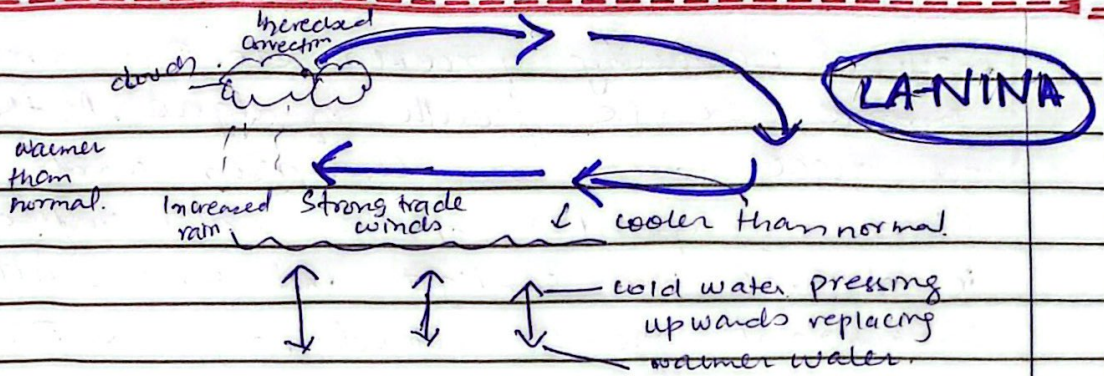 Increased
Convection
clouds
LA-NINA
warmer
than
normal.
Increased
rain
Strong trade
winds.
cooler than normal.
cold water pressing
upwards replacing
warmer water.